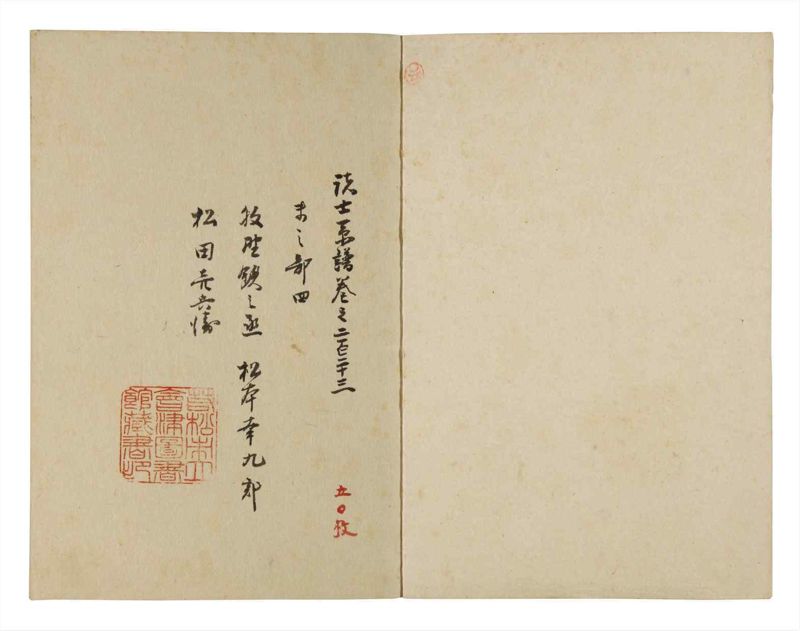 諸士系譜巻之二百二十三
ま之部四
牧野鉄之丞 松本幸九郎
松田兵衛
五〇枚
若松市立
會津圖書
館藏書印